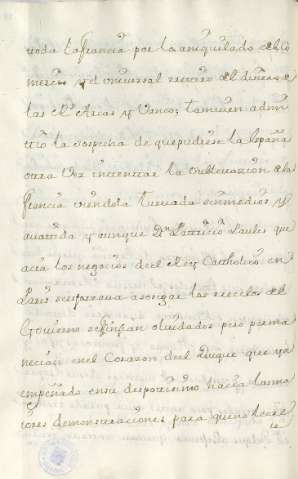 toda la francia por la aniquilado del Co
mercio y el universal recurso del dinero de
las Rs. Arcas y Vanco; tamvien admi
tio la sospecha de que pudiese la España
otra vez intentar la sublevacion de la
francia viendola turvada sin medios y
avatida y aunque Dn. Patricio Laules que
acia los negocios del Rey Catholico en
Paris procurava asegurar los recelos del
Govierno se finjian olvidados pero perma
necian en el Corazon del Duque que ya
empeñado en su despotismo hacia las ma
iores demonstraciones para que no le cre